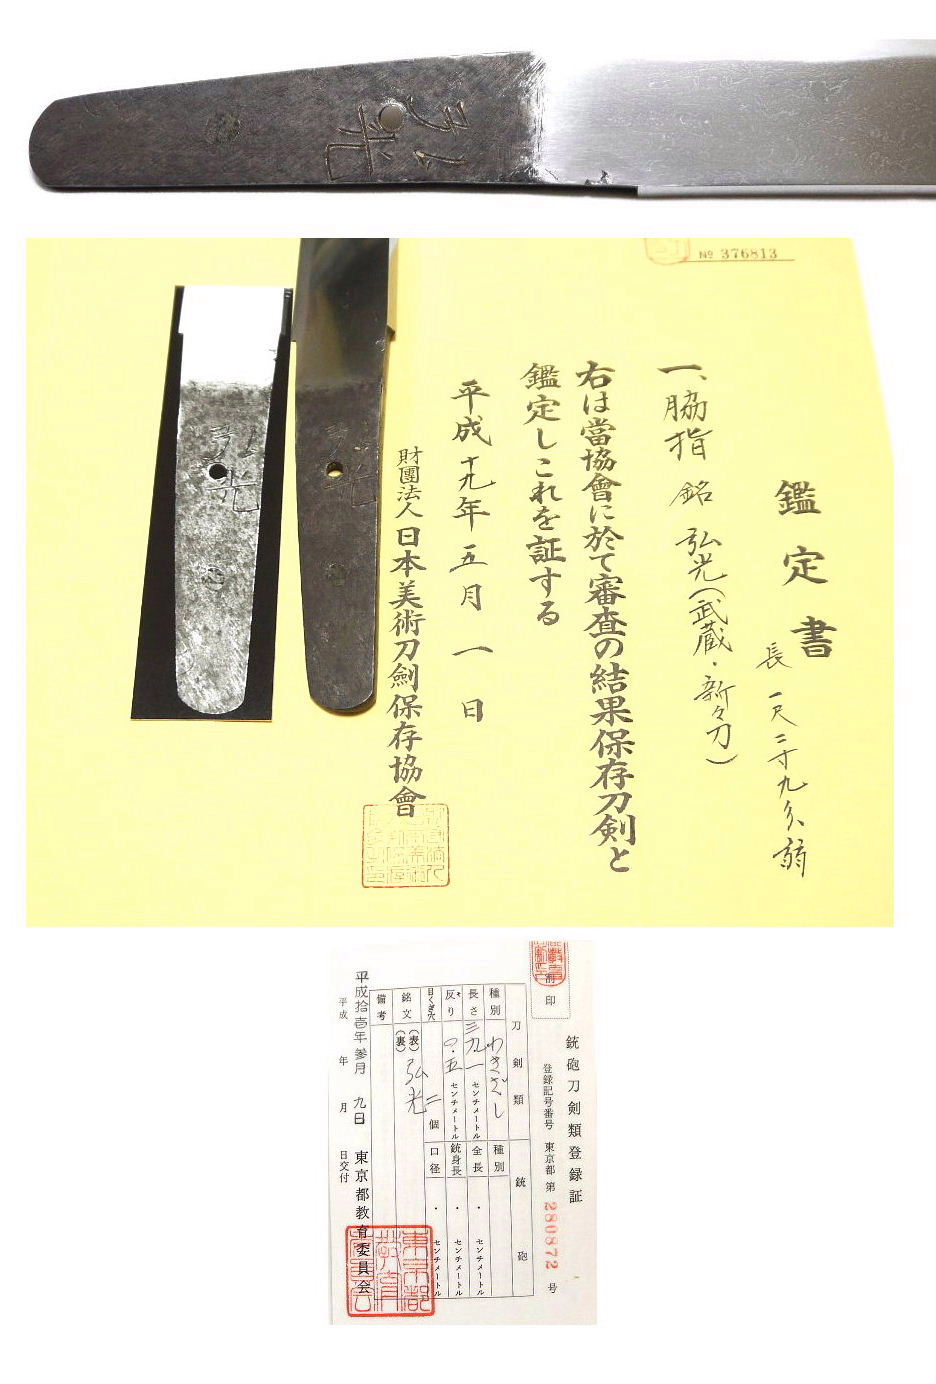 弘光
№ 376813
鑑定書
一、脇指 銘 弘光(武蔵・新々刀)
長 一尺二寸九分弱
右は當協會に於て審査の結果保存刀剣と
鑑定しこれを証する
平成十九年五月一日
財團法人日本美術刀劍保存協會
弘光
弘光
割印
銃砲刀剣類登録証
登録記号番号 東京都 第 280872 号
刀剣類
銃砲
種別 わきざし
種別
長さ 三九・一 センチメートル
全長 ・ センチメートル
反り 〇・五 センチメートル
銃身長 ・ センチメートル
目くぎ穴 二 個
口径 ・ センチメートル
銘文 (表) 弘光
(裏)
備考
平成拾壱年参月九日 東京都教育委員会
平成 年 月 日交付
東京都教育委員会